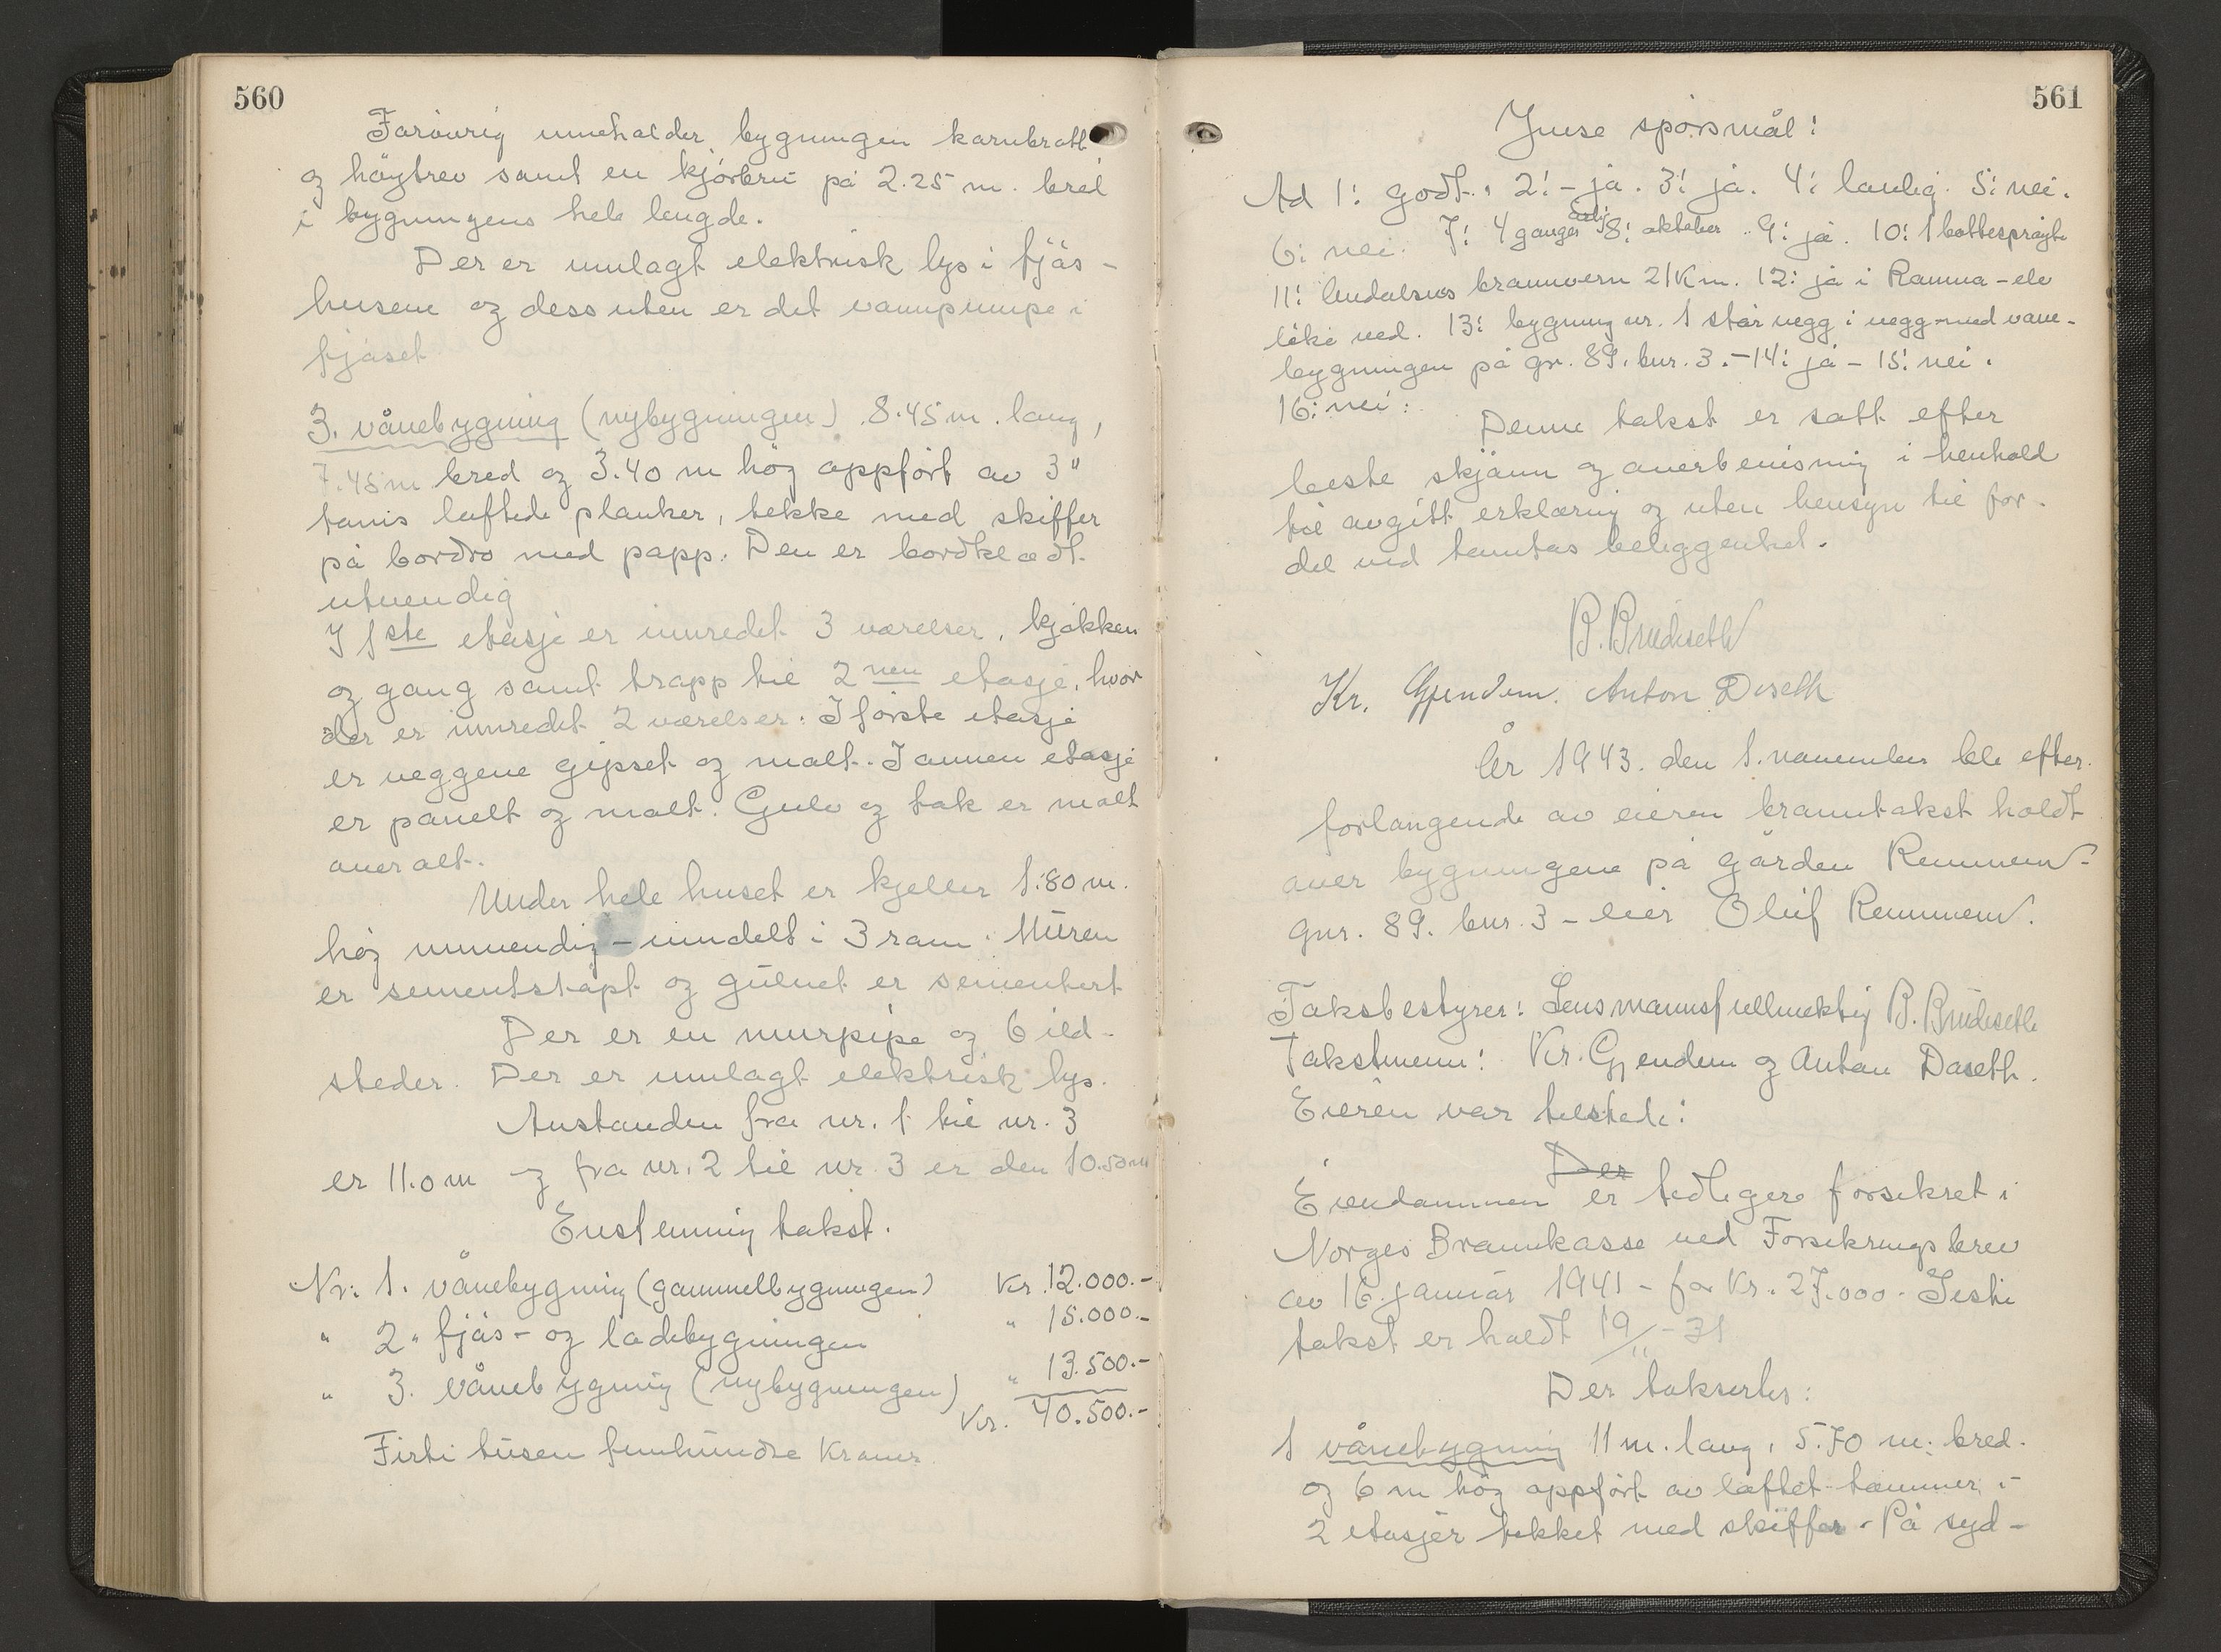 560
Forövrig inneholder bygningen kornbrott
og höytrev samt en kjörbru på 2.25 m. bred
i bygningens hele lengde.
Der er innlagt elektrisk lys i fjös-
husene og dessuten er det vannpumpe i
fjöset
3. vånebygning (nybygningen) 8.45 m. lang,
7.45 m bred og 3.40 m hög oppfört av 3"
toms laftede planker, tekke med skiffer
på bordtro med papp. Den er bordklædt
utvendig
I 1ste etasje er innredet 3 værelser, kjökken
og gang samt trapp til 2nen etasje, hvor
der er innredet 2 værelser. I förste etasje
er veggene gipset og malt. I annen etasje
er panelt og malt. Gulv og tak er malt
overalt.
Under hele huset er kjeller 1.80 m.
hög innvendig - inndelt i 3 rom. Muren
er sementstöpt og gulvet er sementert
Der er en murpipe og 6 ild-
steder. Der er innlagt elektrisk lys.
Avstanden fra nr. 1 til nr. 3
er 11.0 m og fra nr. 2 til nr. 3 er den 10.50 m
Enstemmig takst.
Nr. 1. vånebygning (gammelbygningen) Kr. 12.000.-
" 2. fjös- og ladebygningen " 15.000.-
" 3. Vånebygning (nybygningen) " 13.500.-
Kr. 40.500.-
Firti tusen femhundre Kroner.
561
Ymse spörsmål:
Ad 1: godt. 2: - ja. 3: ja. 4: landlig. 5: nei.
6: nei. 7: 4 ganger årlig 8: oktober. 9: ja. 10: 1 bottesprøyte
11: Åndalsnes brannvern 21 Km. 12: ja i Rauma-elv
like ved. 13: bygning nr. 1 står vegg i vegg med våne-
bygningen på gnr. 89. bnr. 3. - 14: ja - 15: nei.
16: nei:
Denne takst er satt efter
beste skjönn og overbevisning i henhold
til avgitt erklæring og uten hensyn til for-
del ved tomtas beliggenhet.
B. Brudeseth
Kr. Gjendem. Anton Doseth
År 1943. den 1. november ble efter
forlangende av eieren branntakst holdt
over bygningene på gården Remmem
gnr. 89. bnr. 3 - eier Oluf Remmem.
Takstbestyrer: Lensmannsfullmektig B. Brudeseth
Takstmenn: Kr. Gjendem og Anton Doseth.
Eieren var tilstede:
Der
Eiendommen er tidligere forsikret i
Norges Brannkasse ved Forsikringsbrev
av 16. januar 1941 - for Kr. 27.000. Siste
takst er holdt 19/11 - 31
Der takseres:
1 vånebygning 11 m. lang, 5.70 m. bred.
og 6 m hög oppfört av laftet tömmer i
2 etasjer tekket med skiffer. På syd-